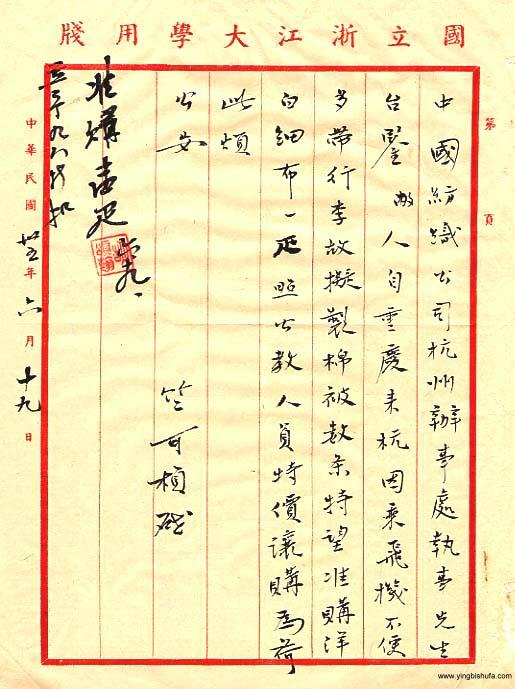 國立浙江大學用牋
第 頁
中國紡織公司杭州辦事處執事先生
台鑒敝人自重慶来杭因乘飛機不便
多帶行李故擬製棉被数条特望准購洋
白細布一疋照公教人員特價讓購為荷
此頌
公安
竺可楨啟
准購壹疋
六 十九
中華民國卅五年六月十九日
www.yingbishufa.com